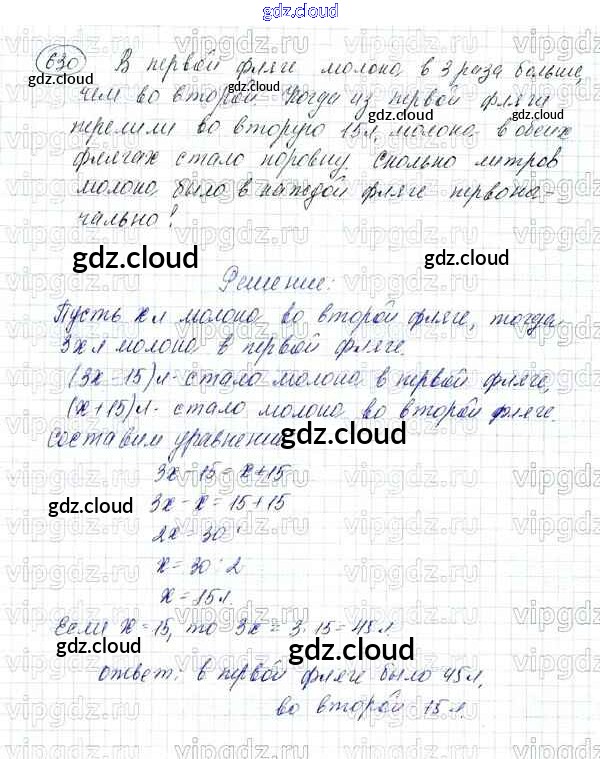 gdz.cloud
630 В первой фляге молока в 3 раза больше,
чем во второй. Когда из первой фляги
перелили во вторую 15 л молока в обеих
флягах стало поровну. Сколько литров
молока было в каждой фляге первона-
чально?
Решение:
Пусть x л молока во второй фляге, тогда
3x л молока в первой фляге.
(3x-15)л - стало молока в первой фляге,
(x+15)л - стало молока во второй фляге.
Составим уравнение
3x-15=x+15
3x-x=15+15
2x=30
x=30:2
x=15л.
Если x=15, то 3x=3·15=45л.
Ответ: в первой фляге было 45л,
во второй - 15л.